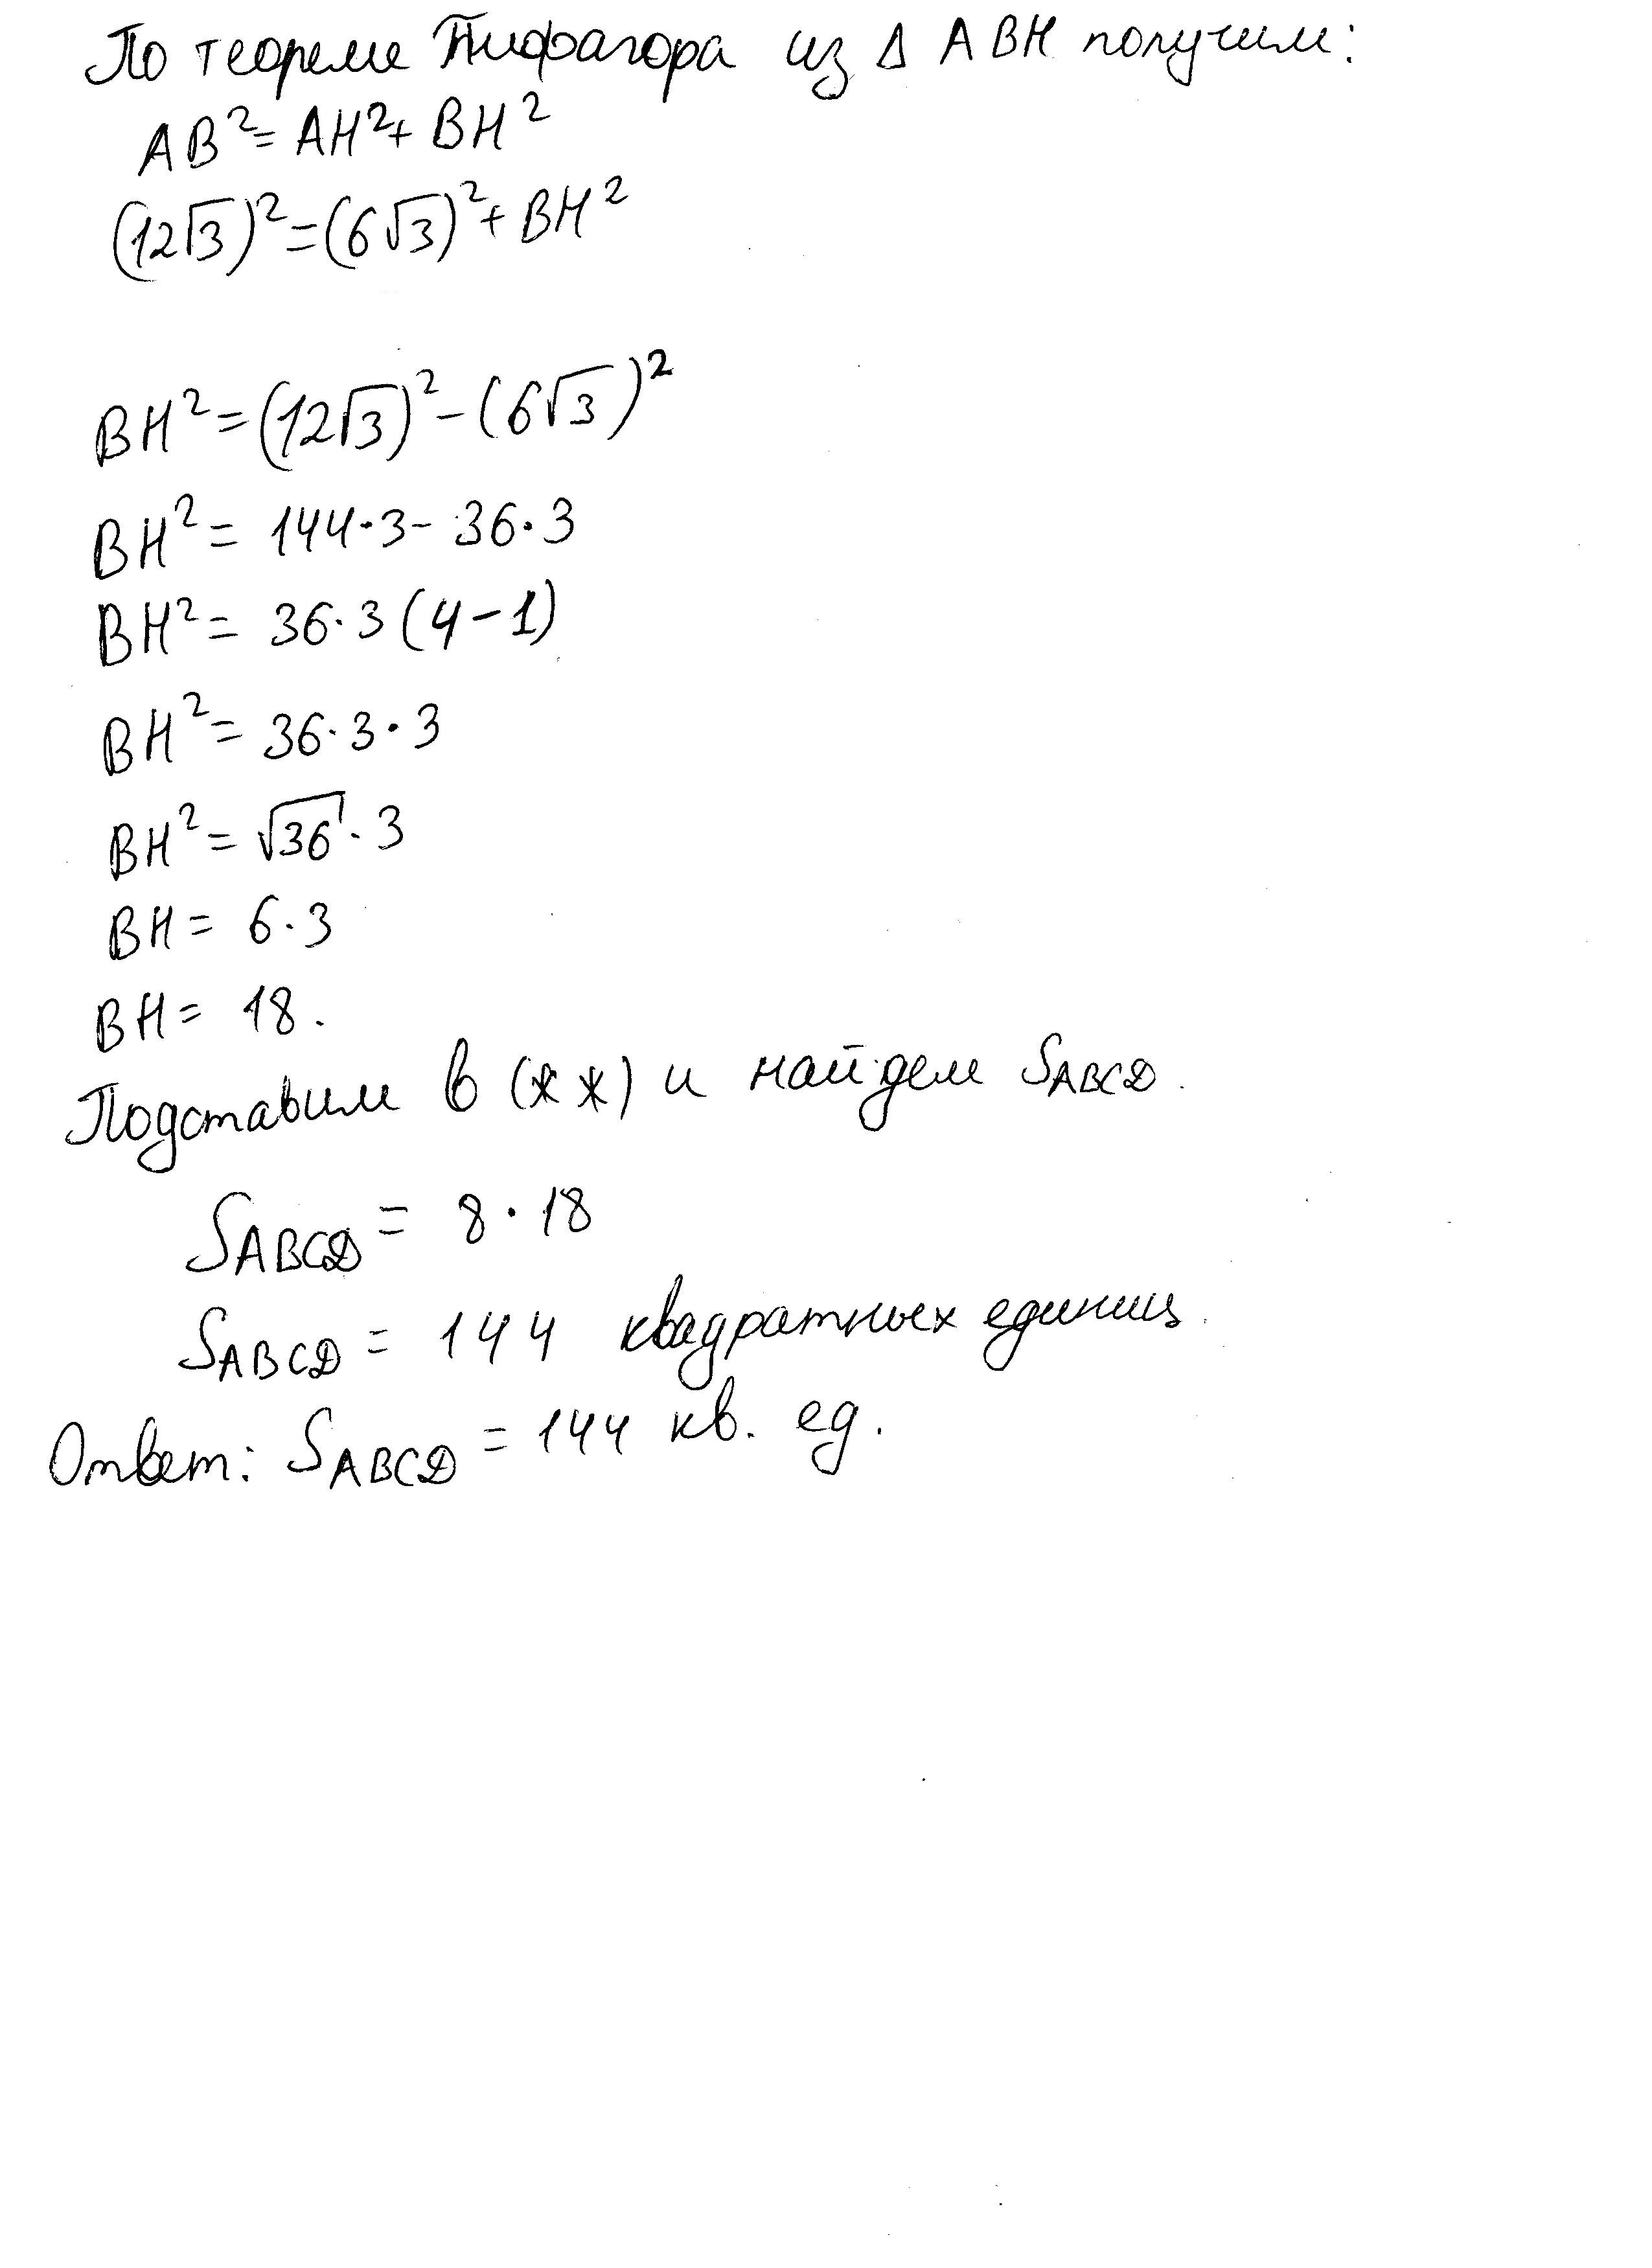 По теореме Пифагора из Δ ABH получим:
AB²= AH²+ BH²
(12√3)²=(6√3)²+ BH²
BH²=(12√3)²-(6√3)²
BH²= 144·3- 36·3
BH²= 36·3(4-1)
BH²= 36·3·3
BH²= √36·3
BH= 6·3
BH= 18.
Подставим в (**) и найдем SABCD.
SABCD= 8·18
SABCD= 144 квадратных единиц.
Ответ: SABCD=144 кв. ед.